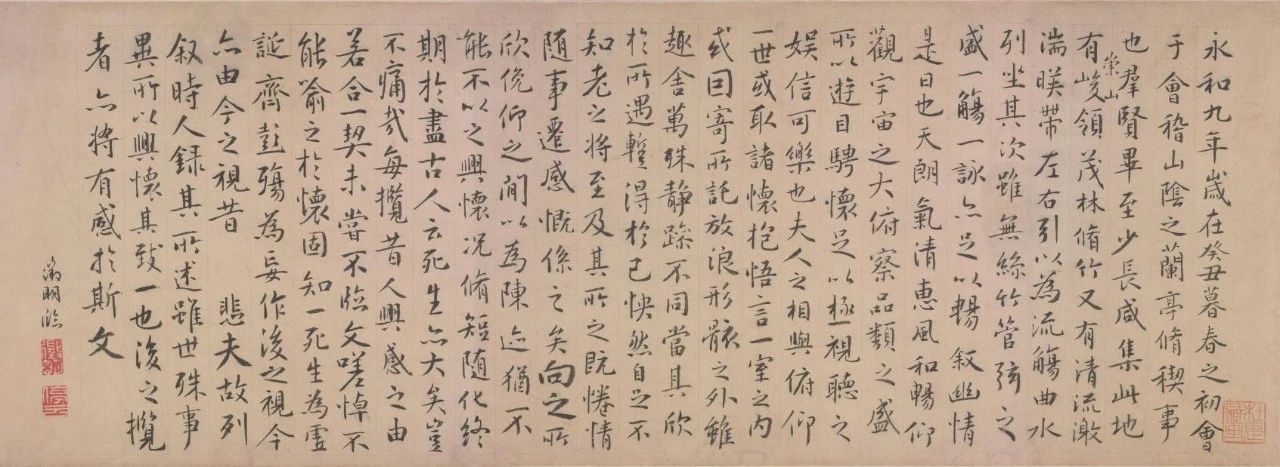 永和九年歲在癸丑暮春之初會
于會稽山陰之蘭亭脩稧事
也羣賢畢至少長咸集此地
有崇山峻領茂林脩竹又有清流激
湍暎帶左右引以為流觴曲水
列坐其次雖無絲竹管弦之
盛一觴一詠亦足以暢叙幽情
是日也天朗氣清惠風和暢仰
觀宇宙之大俯察品類之盛
所以遊目騁懷足以極視聽之
娛信可樂也夫人之相與俯仰
一世或取諸懷抱悟言一室之內
或因寄所託放浪形骸之外雖
趣舍萬殊靜躁不同當其欣
於所遇蹔得於己怏然自足不
知老之將至及其所之既惓情
随事遷感慨係之矣向之所
欣俛仰之閒以為陳迹猶不
能不以之興懷況脩短随化終
期於盡古人云死生亦大矣豈
不痛哉每攬昔人興感之由
若合一契未嘗不臨文嗟悼不
能喻之於懷固知一死生為虛
誕齊彭殤為妄作後之視今
亦由今之視昔 悲夫故列
叙時人録其所述雖世殊事
異所以興懷其致一也後之攬
者亦將有感於斯文
徵明臨